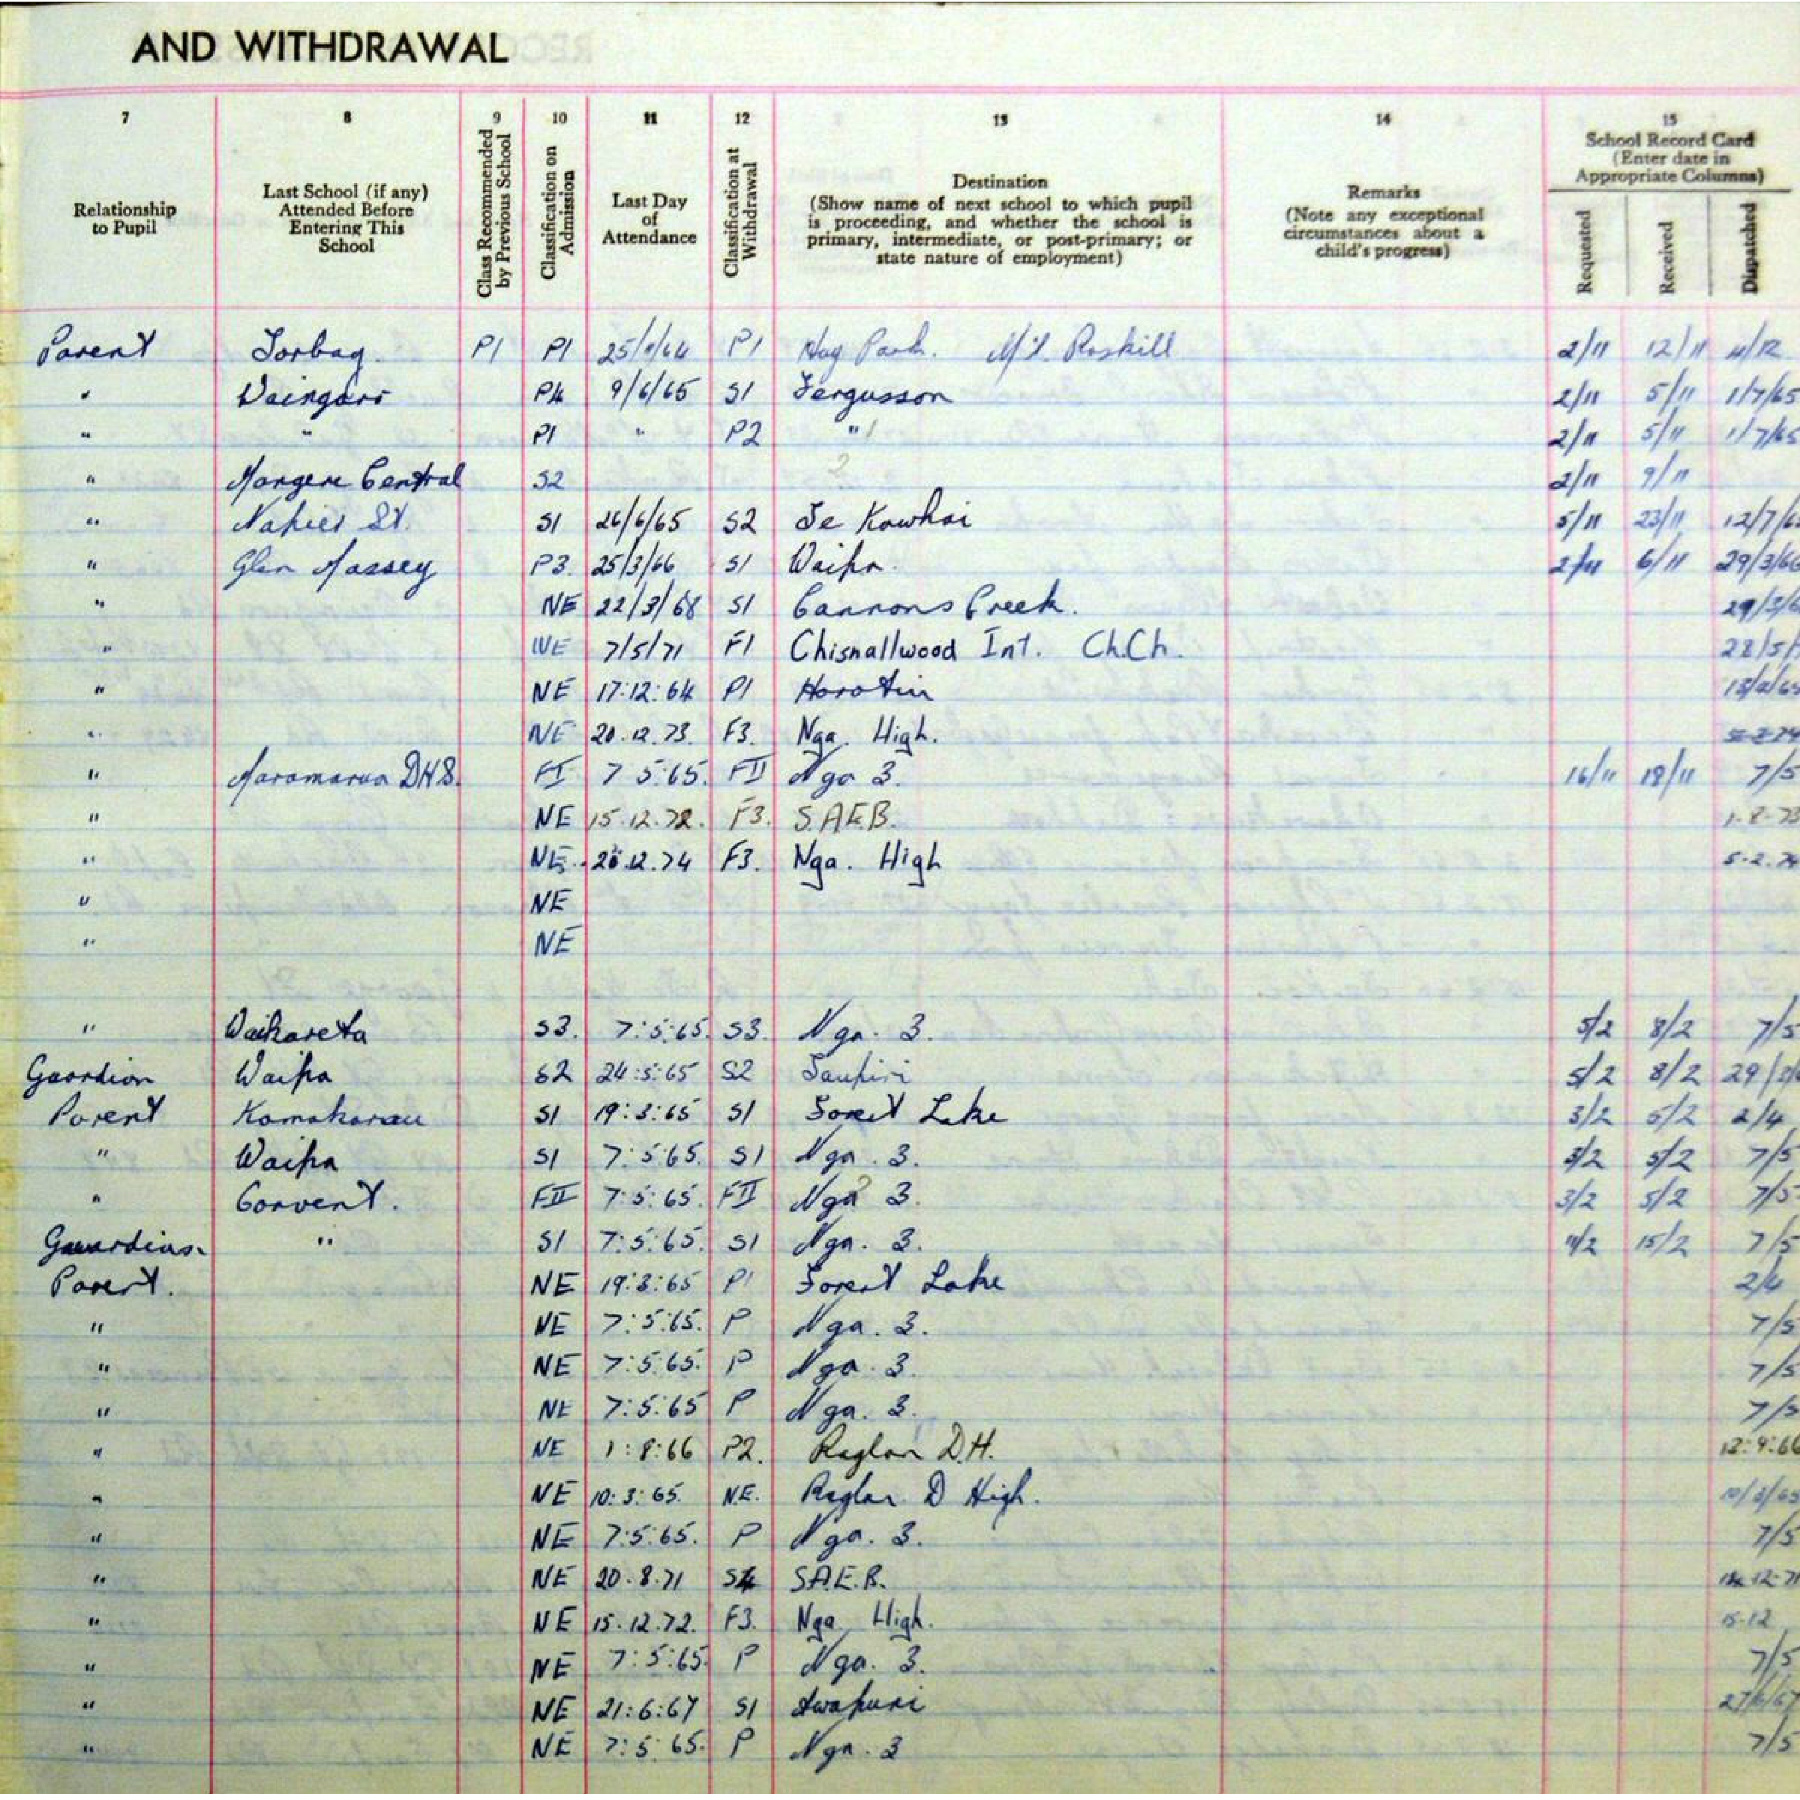 AND WITHDRAWAL
7 8 9 10 11 12 13 14 15
Relationship to Pupil
Last School (if any) Attended Before Entering This School
Class Recommended by Previous School
Classification on Admission
Last Day of Attendance
Classification at Withdrawal
Destination
(Show name of next school to which pupil is proceeding, and whether the school is primary, intermediate, or post-primary; or state nature of employment)
Remarks
(Note any exceptional circumstances about a child's progress)
School Record Card
(Enter date in Appropriate Columns)
Requested Received Dispatched
Parent Torbay. P1 P1 P1 Hay Park. Mt. Roskill 2/11 12/11
" Waingaro P4 9/6/65 S1 Fergusson 2/11 5/11 1/7/65
" " P1 " P2 " 2/11 5/11 1/7/65
" Mangere Central S2 ? 2/11 9/11
" Napier St. S1 26/6/65 S2 Te Kowhai 5/11 23/11 12/7/6
" Glen Massey P3. 25/3/66 S1 Waipa. 2/11 6/11 29/3/66
" NE 22/3/68 S1 Cannons Creek. 29/3/6
" NE 7/5/71 F1 Chisnallwood Int. Ch.Ch.
" NE 17:12:64 P1 Horotiu
" NE 20.12.73. F3. Nga. High.
" Maramarua D.H.S. FI 7 5:65. FII Nga 3. 16/11 18/11 7/5
" NE 15.12.72. F3. S.A.E.B. 1-8-73
" NE 20.12.74 F3. Nga. High 5.2.74
" NE
" NE
" Waikaretu S3. 7:5:65. S3. Nga. 3. 5/2 8/2 7/5
Guardian Waipa S2 24:5:65 S2 Taupiri 5/2 8/2
Parent Komakorau S1 19:3:65 S1 Forest Lake 3/2 5/2 2/4
" Waipa S1 7:5:65. S1 Nga. 3. 3/2 5/2 7/5
" Convent. FII 7:5:65. FII Nga 3. 3/2 5/2 7/5
Guardian. " S1 7:5:65. S1 Nga. 3. 11/2 15/2 7/5
Parent. NE 19:3:65 P1 Forest Lake 2/4
" NE 7:5:65. P Nga. 3. 7/5
" NE 7:5:65. P Nga. 3. 7/5
" NE 7:5:65 P Nga. 3. 7/5
" NE 1:8:66 P2. Raglan D.H. 12:9:66
" NE 10:3:65. N.E. Raglan D High. 10/3/65
" NE 7:5:65. P Nga. 3. 7/5
" NE 20.8.71 S4 S.A.E.B.
" NE 15.12.72. F3. Nga. High. 15.12
" NE 7:5:65. P Nga. 3. 7/5
" NE 21:6:67 S1 Awapuni 27/6/67
" NE 7:5:65. P Nga. 3 7/5